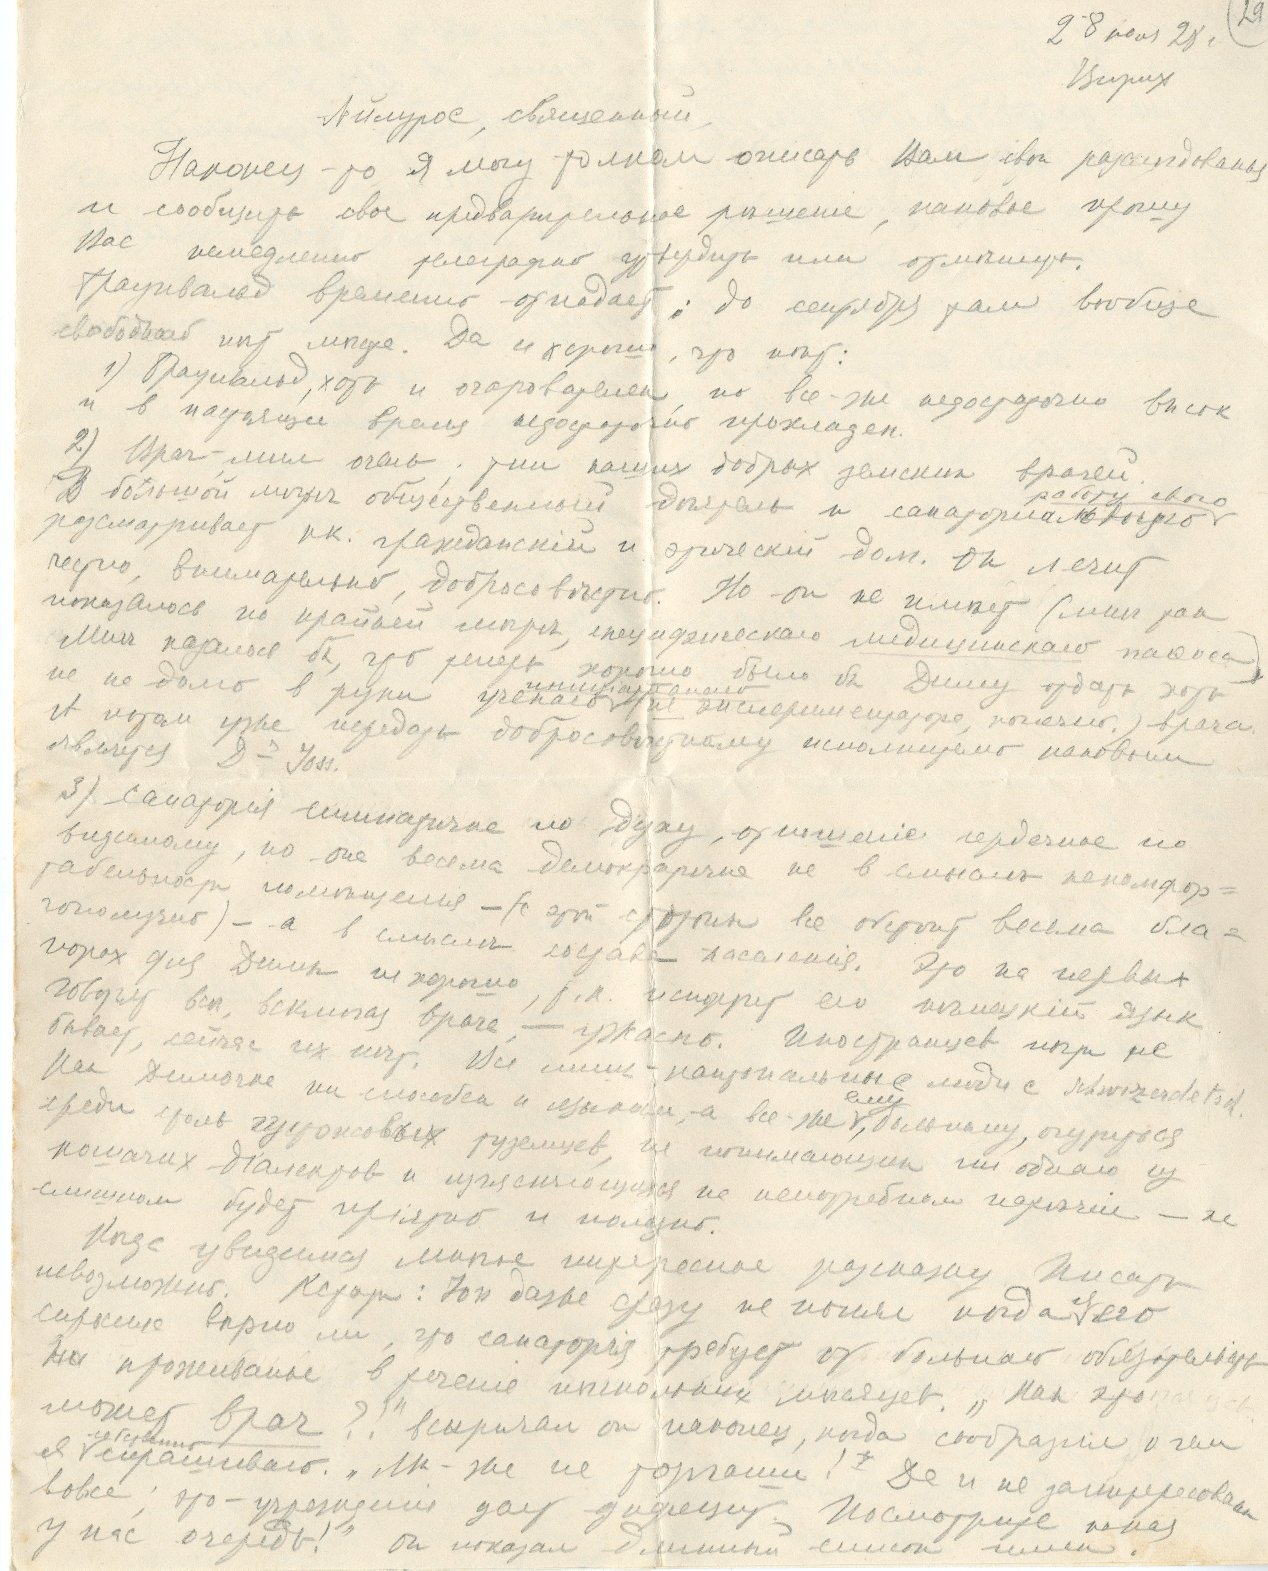 29
28 июня 28 г.
Цюрих
Айлурос, священный,
Наконец-то я могу толком описать Вам свои разследованья
и сообщить свое предварительное рѣшеніе, каковое прошу
Вас немедленно телеграфно утвердить или отмѣнить.
Браунвальд временно отпадает: до сентября там вообще
свободных нѣт мѣст. Да и хорошо, что нѣт:
1) Браунвальд, хоть и очарователен, но все-же недостаточно высок
и в настоящее время недостаточно прохладен.
2) Врач мил очень, тип наших добрых земских врачей.
В большой мѣрѣ общественный дѣятель и
работу свою
разсматривает как гражданскій и этическій долг. Он лечит
честно, внимательно, добросовѣстно. Но он не имѣет (мнѣ так
показалось по крайней мѣрѣ) специфическаго медицинскаго пафоса.
Мнѣ казалось бы, что теперь хорошо было бы Диму отдать хоть
не на долго в руки ученаго (не экспериментатора, конечно) врача.
А потом уже передать добросовѣстному исполнителю каковым
является Dr Joss.
3) Санаторія симпатичне по духу, отношеніе сердечное по
видимому, но она весьма демократичне не в смыслѣ некомфор=
табельности помѣщенія – (с этой стороны все обстоит весьма бла=
гополучно) – а в смыслѣ состава населенія. Это на первых
порах для Димы не хорошо, т.к. испортит его нѣмецкій язык
Говорят всѣ, включая врача, — ужасно. Иностранцев почти не
бывает, сейчас их нѣт. Все мѣстно-національные люди с schwizerdetsch.
Как Димочка ни способен к языкам, а все-же ему, больному, очутиться
среди столь туземцев, не понимающих ни одного из
діалектов и изъясняющихся на непотребном нарѣчіи — не
слишком будет пріятно и полезно.
Когда увидимся многое интересное разскажу. Писать
невозможно. Кстати: Joss даже сразу не понял когда я его
спросила вѣрно ли, что санаторія требует от больного обязательств
на проживанье в теченіе нѣскольких мѣсяцев. „Как это
может врач?!" вскричал он наконец, когда сообразил о чем
я спрашиваю. „Мы-же не торгаши! Да и не заинтересованы
вовсе; это-учрежденіе дает дефицит. Посмотрите какая
у нас очередь!" Он показал длинный список имен.